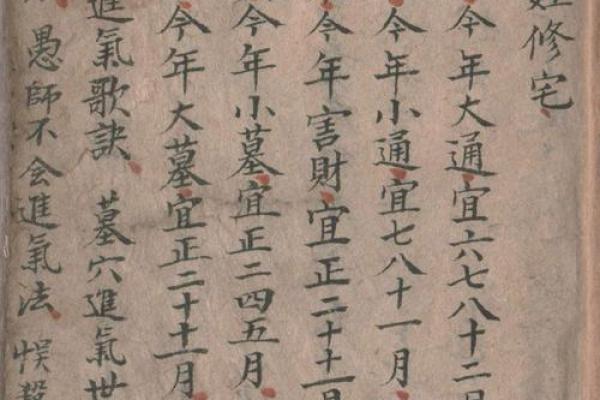 修宅
今年大通宜六七八十二月
今年小通宜七八十一月
今年害財宜正二十十一月
今年小墓宜正二四五月
今年大墓宜正二十十一月
進氣歌訣 墓穴進氣世
愚師不会進氣法 悞